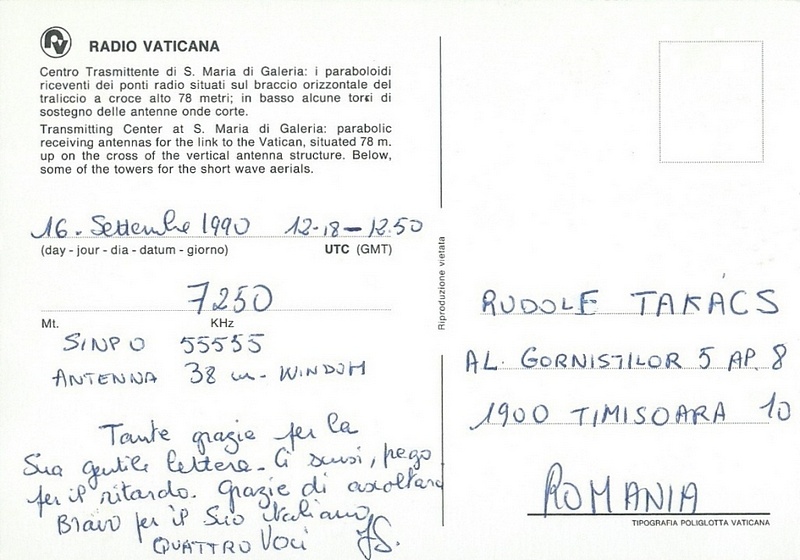 RADIO VATICANA
Centro Trasmittente di S. Maria di Galeria: i paraboloidi
riceventi dei ponti radio situati sul braccio orizzontale del
traliccio a croce alto 78 metri; in basso alcune torri di
sostegno delle antenne onde corte.
Transmitting Center at S. Maria di Galeria: parabolic
receiving antennas for the link to the Vatican, situated 78 m.
up on the cross of the vertical antenna structure. Below,
some of the towers for the short wave aerials.
16. Settembre 1990 12-18-12.50
(day - jour - dia - datum - giorno) UTC (GMT)
7250
Mt. KHz
SINPO 55555
ANTENNA 38 m - WINDOM
Tante grazie per la
Sua gentile lettera. Ci scusi, prego
per il ritardo. Grazie di ascoltare
Bravo per il Suo italiano
QUATTRO VOCI JS.
Riproduzione vietata
RUDOLF TAKÁCS
AL. GORNISTILOR 5 AP. 8
1900 TIMISOARA 10
ROMANIA
TIPOGRAFIA POLIGLOTTA VATICANA